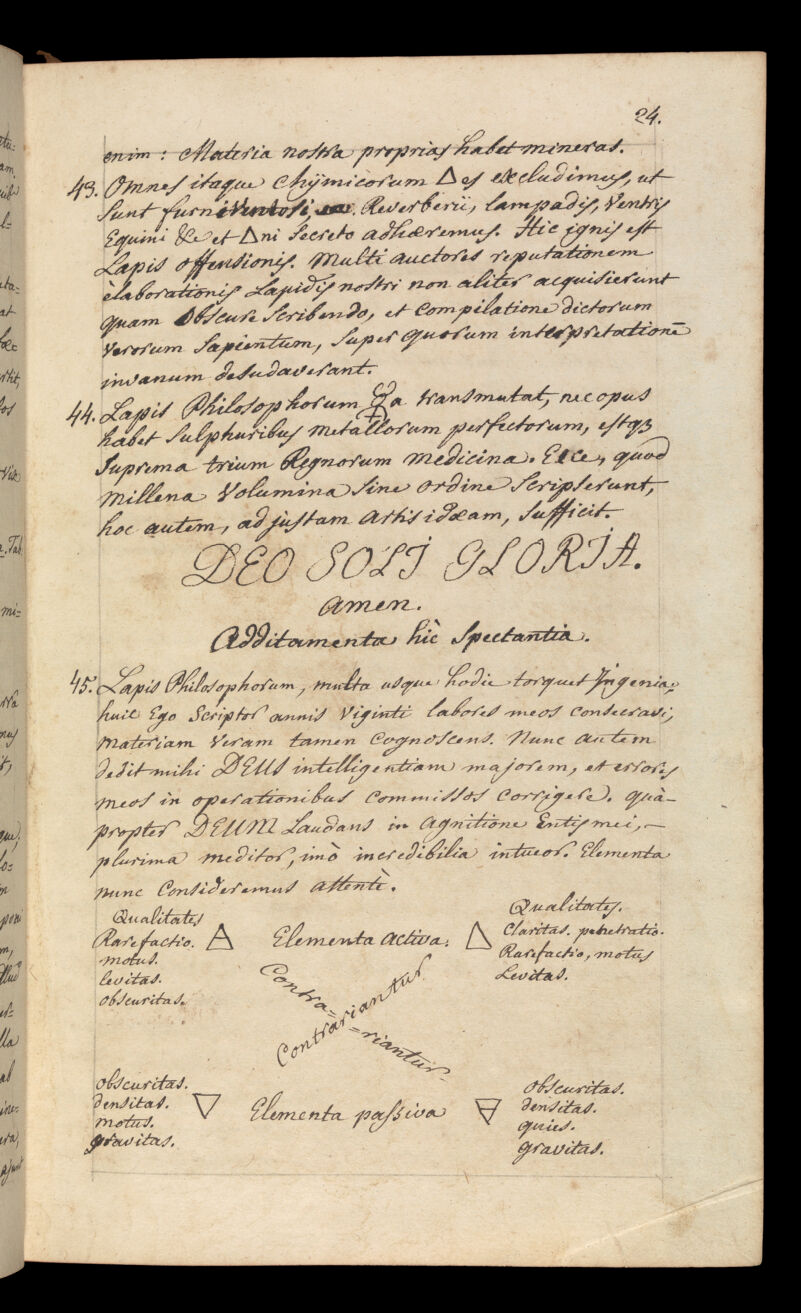 24.
enim: Materia nostra proprias habet mineras.
43. Omnes itaque Chÿmicorum △es excludimus, ut
sunt furni Ventosi, Reverberii, lampadis, Ventris
Equini &c et △ni secreto adhæremus. Hic ignis est
Lapis offensionis. Multi auctores reputationem
elaborationis Lapidis nostri non aliter acquisierunt
quam Obscure scribendo, et compilatione dictorum
verorum sapientum, super quorum interpretationē
invanum desudaverant.
44. Lapis Philosophorum a transmutat, nec opus
habet sulphuribus metallorum perfectorum, estqз
suprema trium Regnorum medicina. Ecce, quod
millena Volumina sine ordine scripserunt,
hoc autem, ad justam artis idæam, sufficit.
DEO SOLI GLORIA.
amen.
Additamenta hic spectantia.
45. Lapis Philosophorum, multa usque hodie torquet Ingenia,
huic Ego Scriptor annis Viginti labores meos consecravi,
materiam veram tamen cognoscens. Nunc autem
dedit mihi DEUS intelligentiam majorem, et errores
meos in operationibus commissos corrigere. quà-
propter DEUM Laudans in agnitione Entis mei,
plurima meditor, imò incredibilia intueor. Elementa
nunc consideremus attentè.
Qualitates
Rarefactio.
motus.
levitas.
obscuritas.
🜁 Elementa activa. △
Qualitates.
Claritas. penetratio.
Rarefactio, motus
Levitas.
Contra=
=riantur
Contrariantur
obscuritas.
densitas.
motus.
gravitas.
▽ Elementa passiva 🜃
obscuritas.
densitas.
quies.
gravitas.